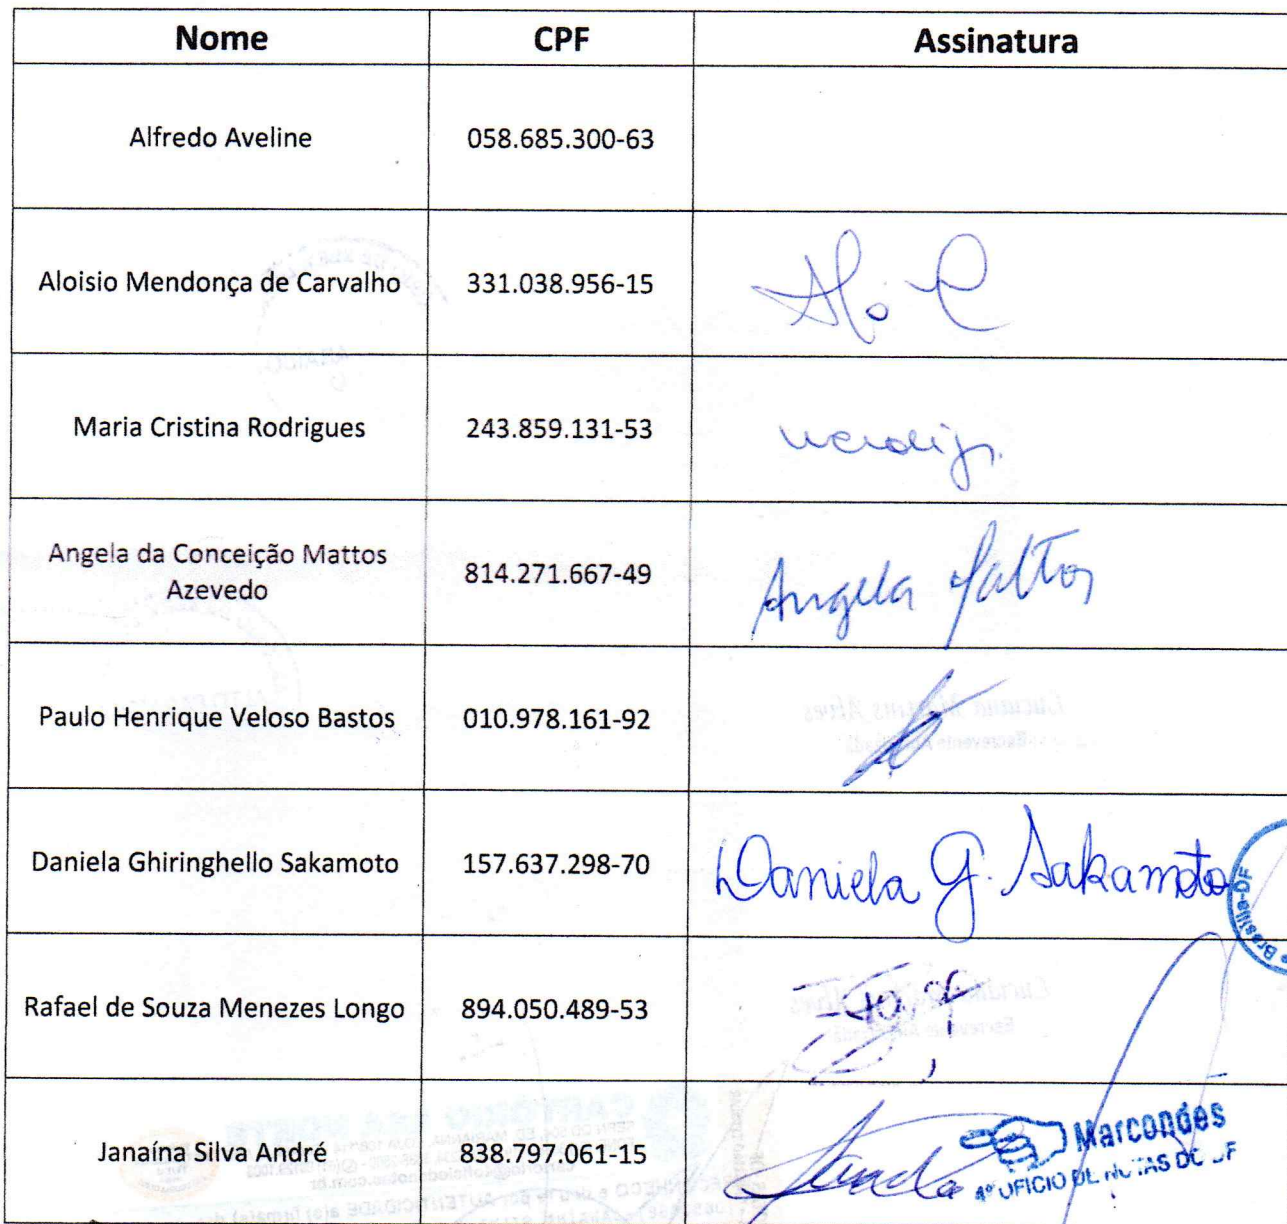 Nome CPF Assinatura
Alfredo Aveline 058.685.300-63
Aloisio Mendonça de Carvalho 331.038.956-15
Maria Cristina Rodrigues 243.859.131-53
Angela da Conceição Mattos
Azevedo 814.271.667-49 Angela Mattos
Paulo Henrique Veloso Bastos 010.978.161-92
Daniela Ghiringhello Sakamoto 157.637.298-70 Daniela G. Sakamoto
Brasília-DF
Rafael de Souza Menezes Longo 894.050.489-53
Janaína Silva André 838.797.061-15
Marcondes
4º OFICIO DE NOTAS DO DF